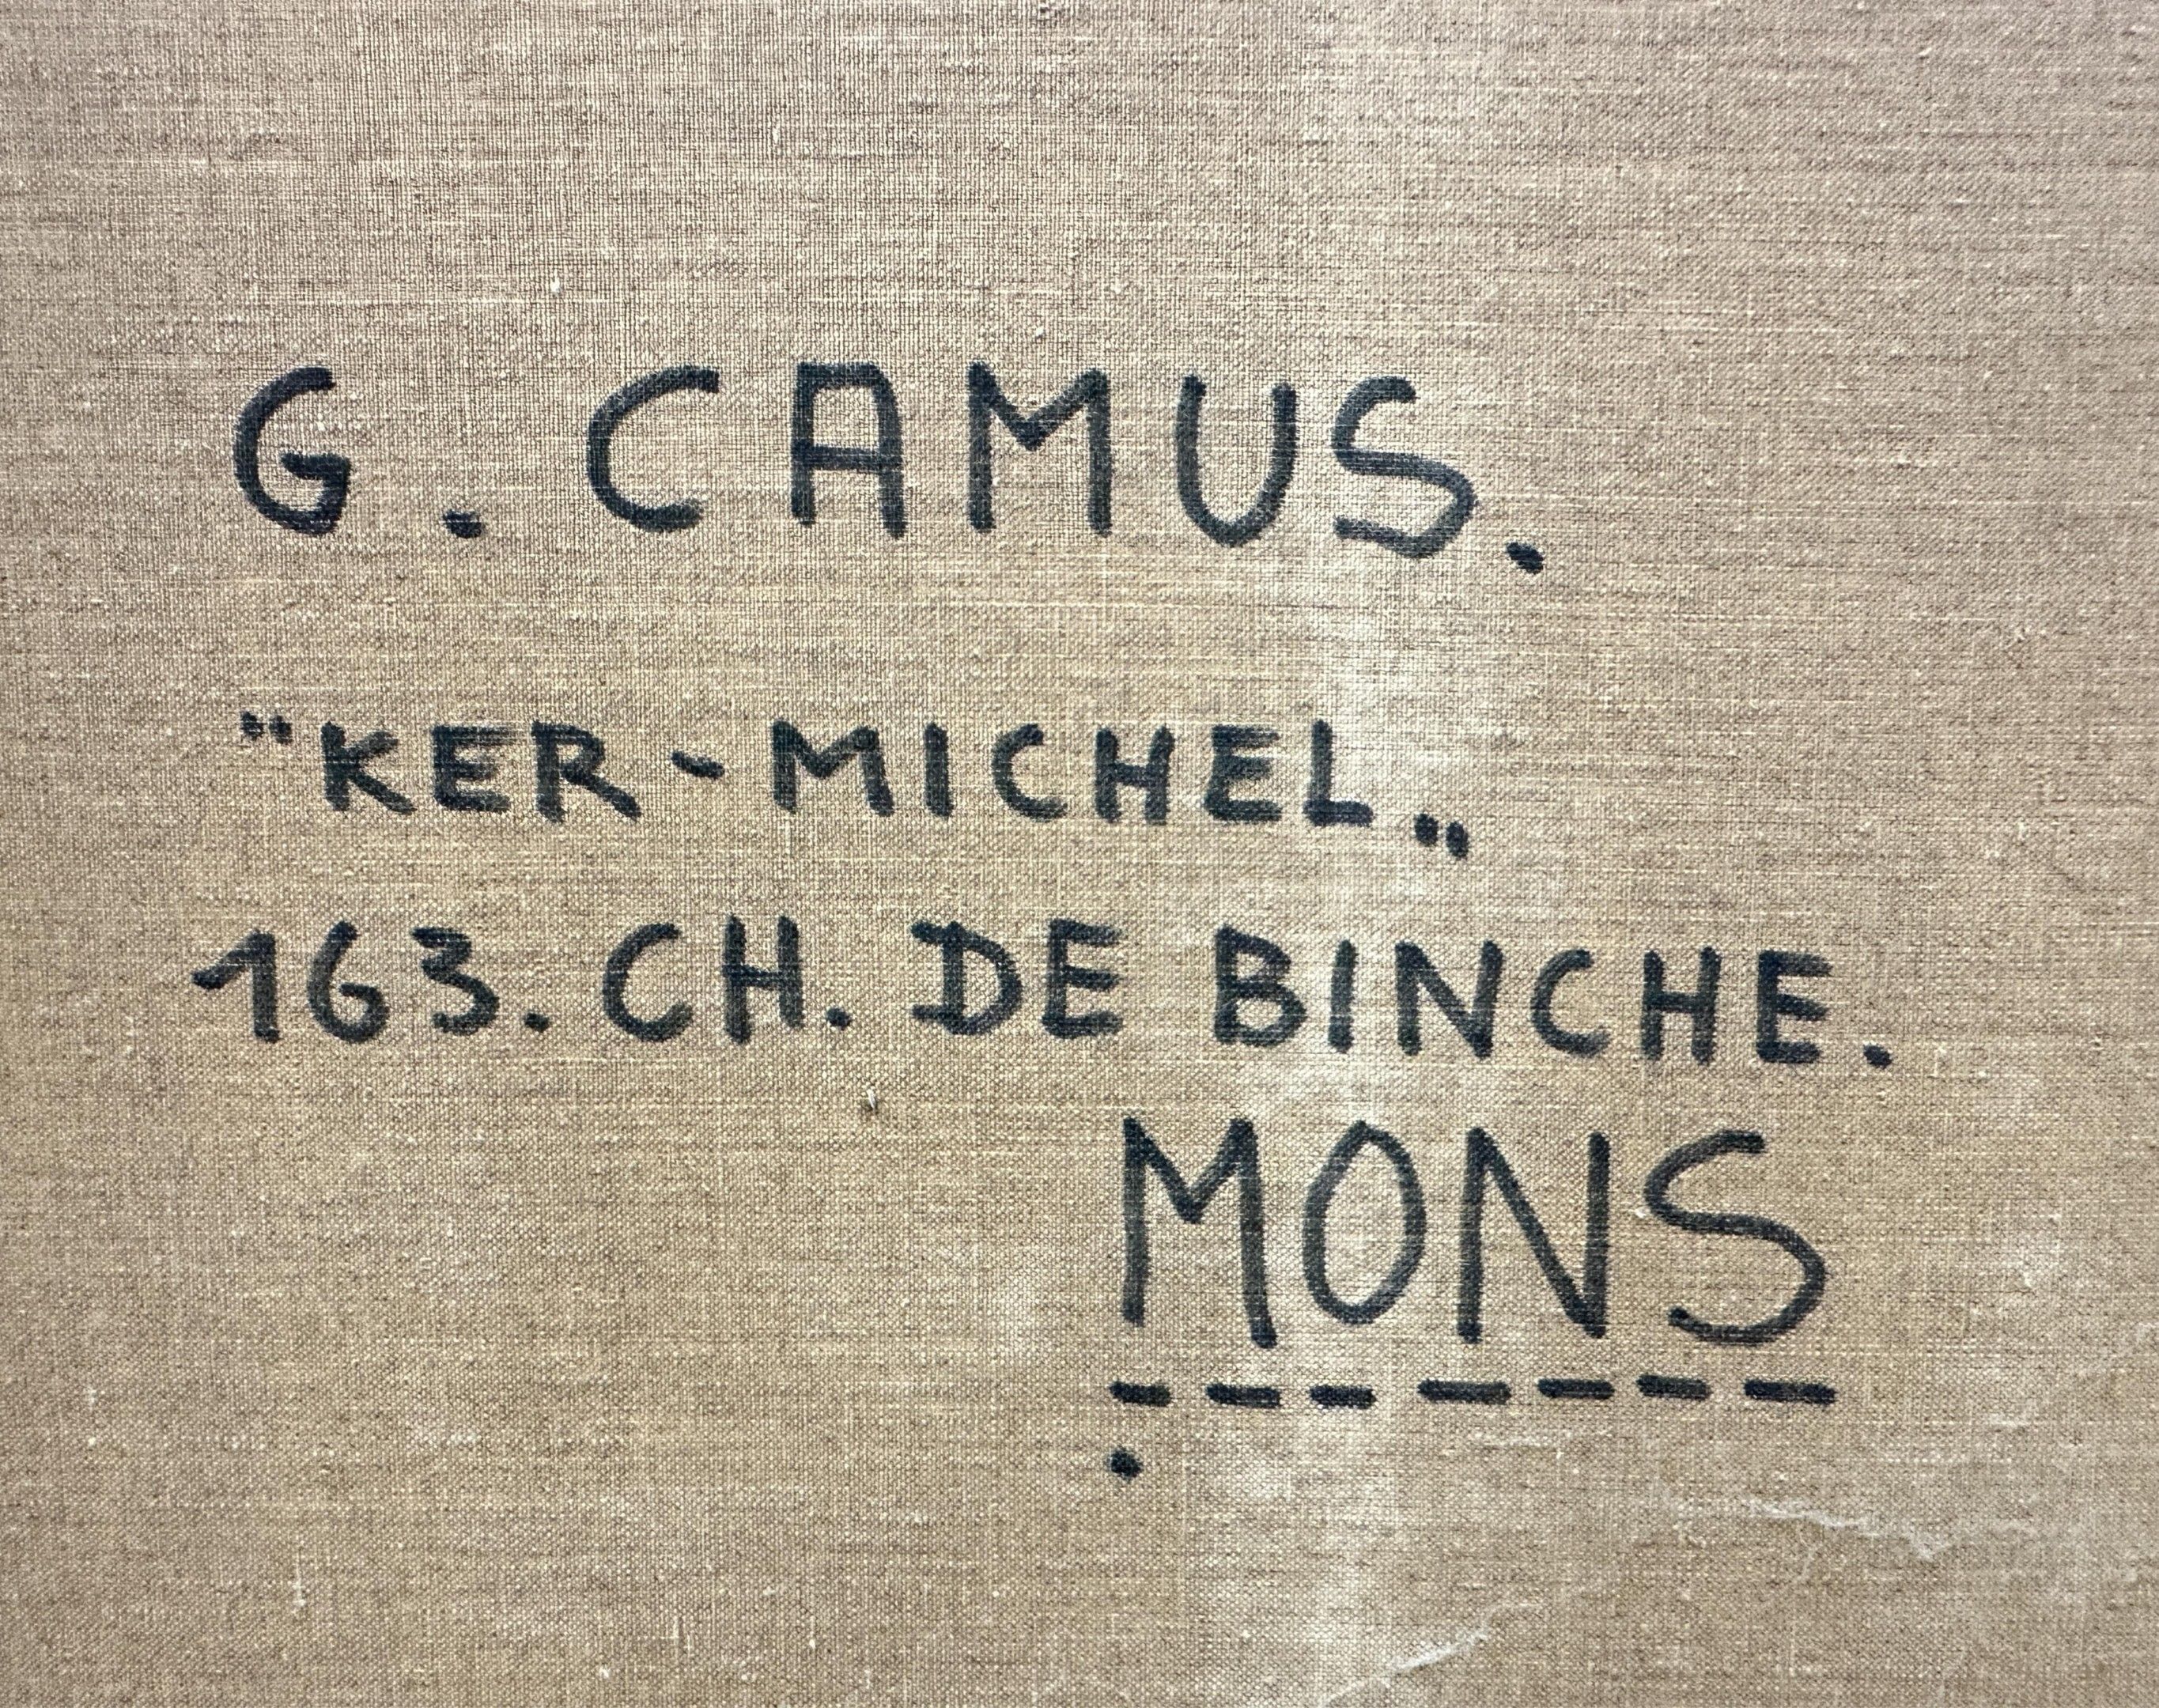 G. CAMUS.
"KER-MICHEL„
163. CH. DE BINCHE.
MONS